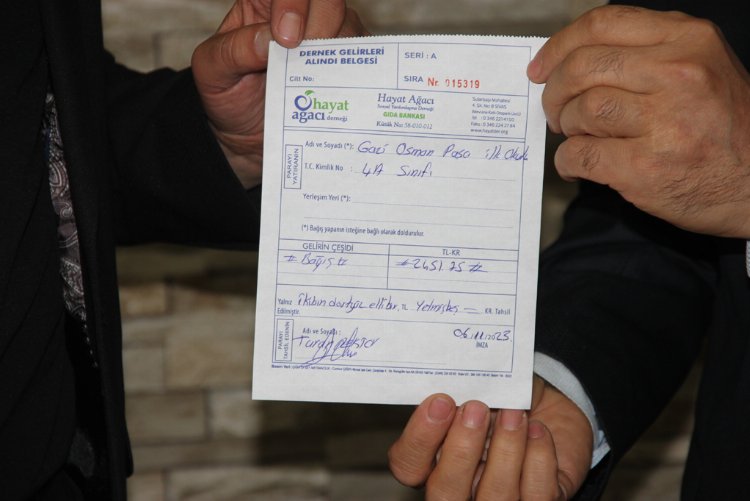 DERNEK GELİRLERİ
ALINDI BELGESİ
Cilt No:
SERİ : A
SIRA Nr. 015319
hayat
ağacı derneği
Hayat Ağacı
Sosyal Yardımlaşma Derneği
GIDA BANKASI
Kütük No: 58-010-012
PARAYI
YATIRANIN
Adı ve Soyadı (*): Gazi Osman Paşa ilk Okulu
T.C. Kimlik No : 4A Sınıfı
Yerleşim Yeri (*):
(*) Bağış yapanın isteğine bağlı olarak doldurulur.
GELİRİN ÇEŞİDİ
TL-KR
# Bağış #
# 2451.75 #
Yalnız ikibin dörtyüz ellibir, TL Yetmişbeş KR. Tahsil
Edilmiştir.
PARAYI
TAHSİL EDENİN
Adı ve Soyadı :
06/11/2023
İMZA